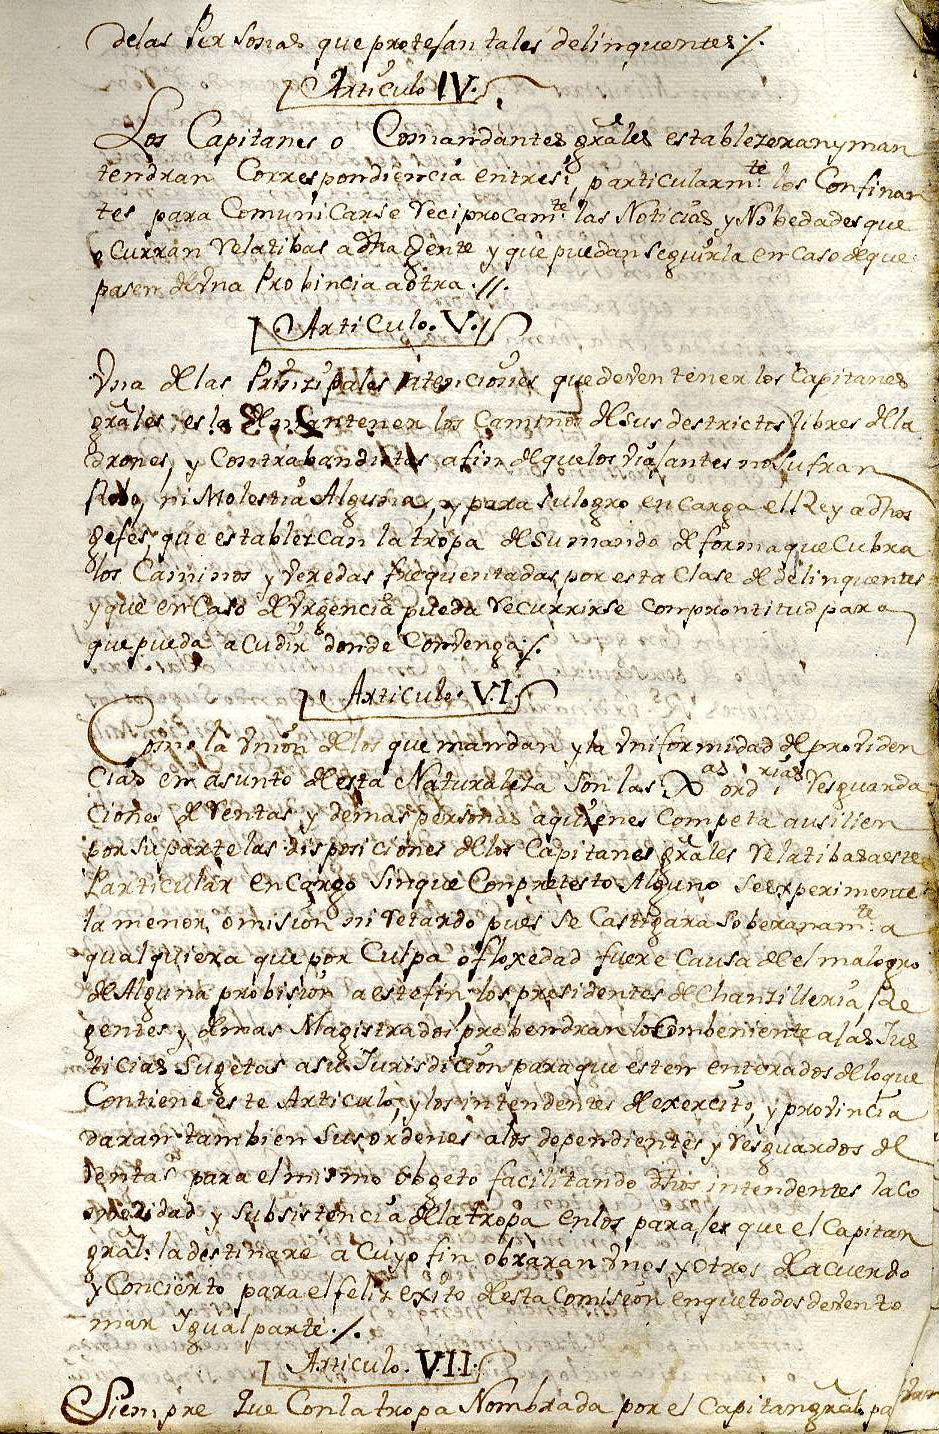 delas Personas que protejan tales delinquentes ./.
Articulo IV.
Los Capitanes o Comandantes grâles establezeran y man
tendran Correspondiencia entresi, particularmte. los Confinan
tes para Comunicarse reciprocamte. las Noticias y Nobedades que
ocurran relatibas a dha Gente y que puedan seguirla en Caso de que
pasen de Vna Probincia a otra .//.
Articulo. V. //
Vna de las Prinzipales intenciones que deven tener los Capitanes
grâles es la de mantener los Caminos de sus destrictos libres de la
drones, y Contrabandistas afin de que los viajantes no sufran
Robo, ni Molestia Alguna, y para su logro encarga el Rey a dhos
gefes, que establezcan la tropa de su mando de forma que Cubra
los Caminos y veredas frequentadas por esta Clase de delinquentes
y que en Caso de Vrgencia pueda recurrirse con prontitud para
que pueda acudir donde Convenga ./.
Articulo. VI.
Como la Vnion de los que mandan y la Vniformidad de providen
cias en asunto de esta Naturaleza son las ordrias resguarda
ciones de rentas y demas personas a quienes Competa ausilien
por su parte las disposiciones de los Capitanes grâles relatibas a este
Particular encargo sin que Con pretesto Alguno se experimente
la menor omision ni retardo pues se Castigara soberanamte. a
qualquiera que por Culpa o floxedad fuere Causa de el malogro
de Alguna probision a este fin, los presidentes de Chanzilleria, Re
gentes y demas Magistrados prebendran lo Combeniente a las Jus
ticias Sugetas a su Jurisdicion para que esten enterados de lo que
Contiene este Articulo, y los intendentes de exercito, y provincia
daran tambien sus ordenes a los dependientes y resguardos de
rentas para el mismo obgeto facilitando dhos intendentes la Co
modidad y subsistencia de la tropa en los parajes que el Capitan
grâl: la destinare a Cuyo fin obraran Vnos, y otros de acuerdo
y Concierto para el feliz exito de esta Comision en que todos deven to
mar Ygual parte ./.
Articulo. VII.
Siempre que Con la tropa Nombrada por el Capitan grâl. pa